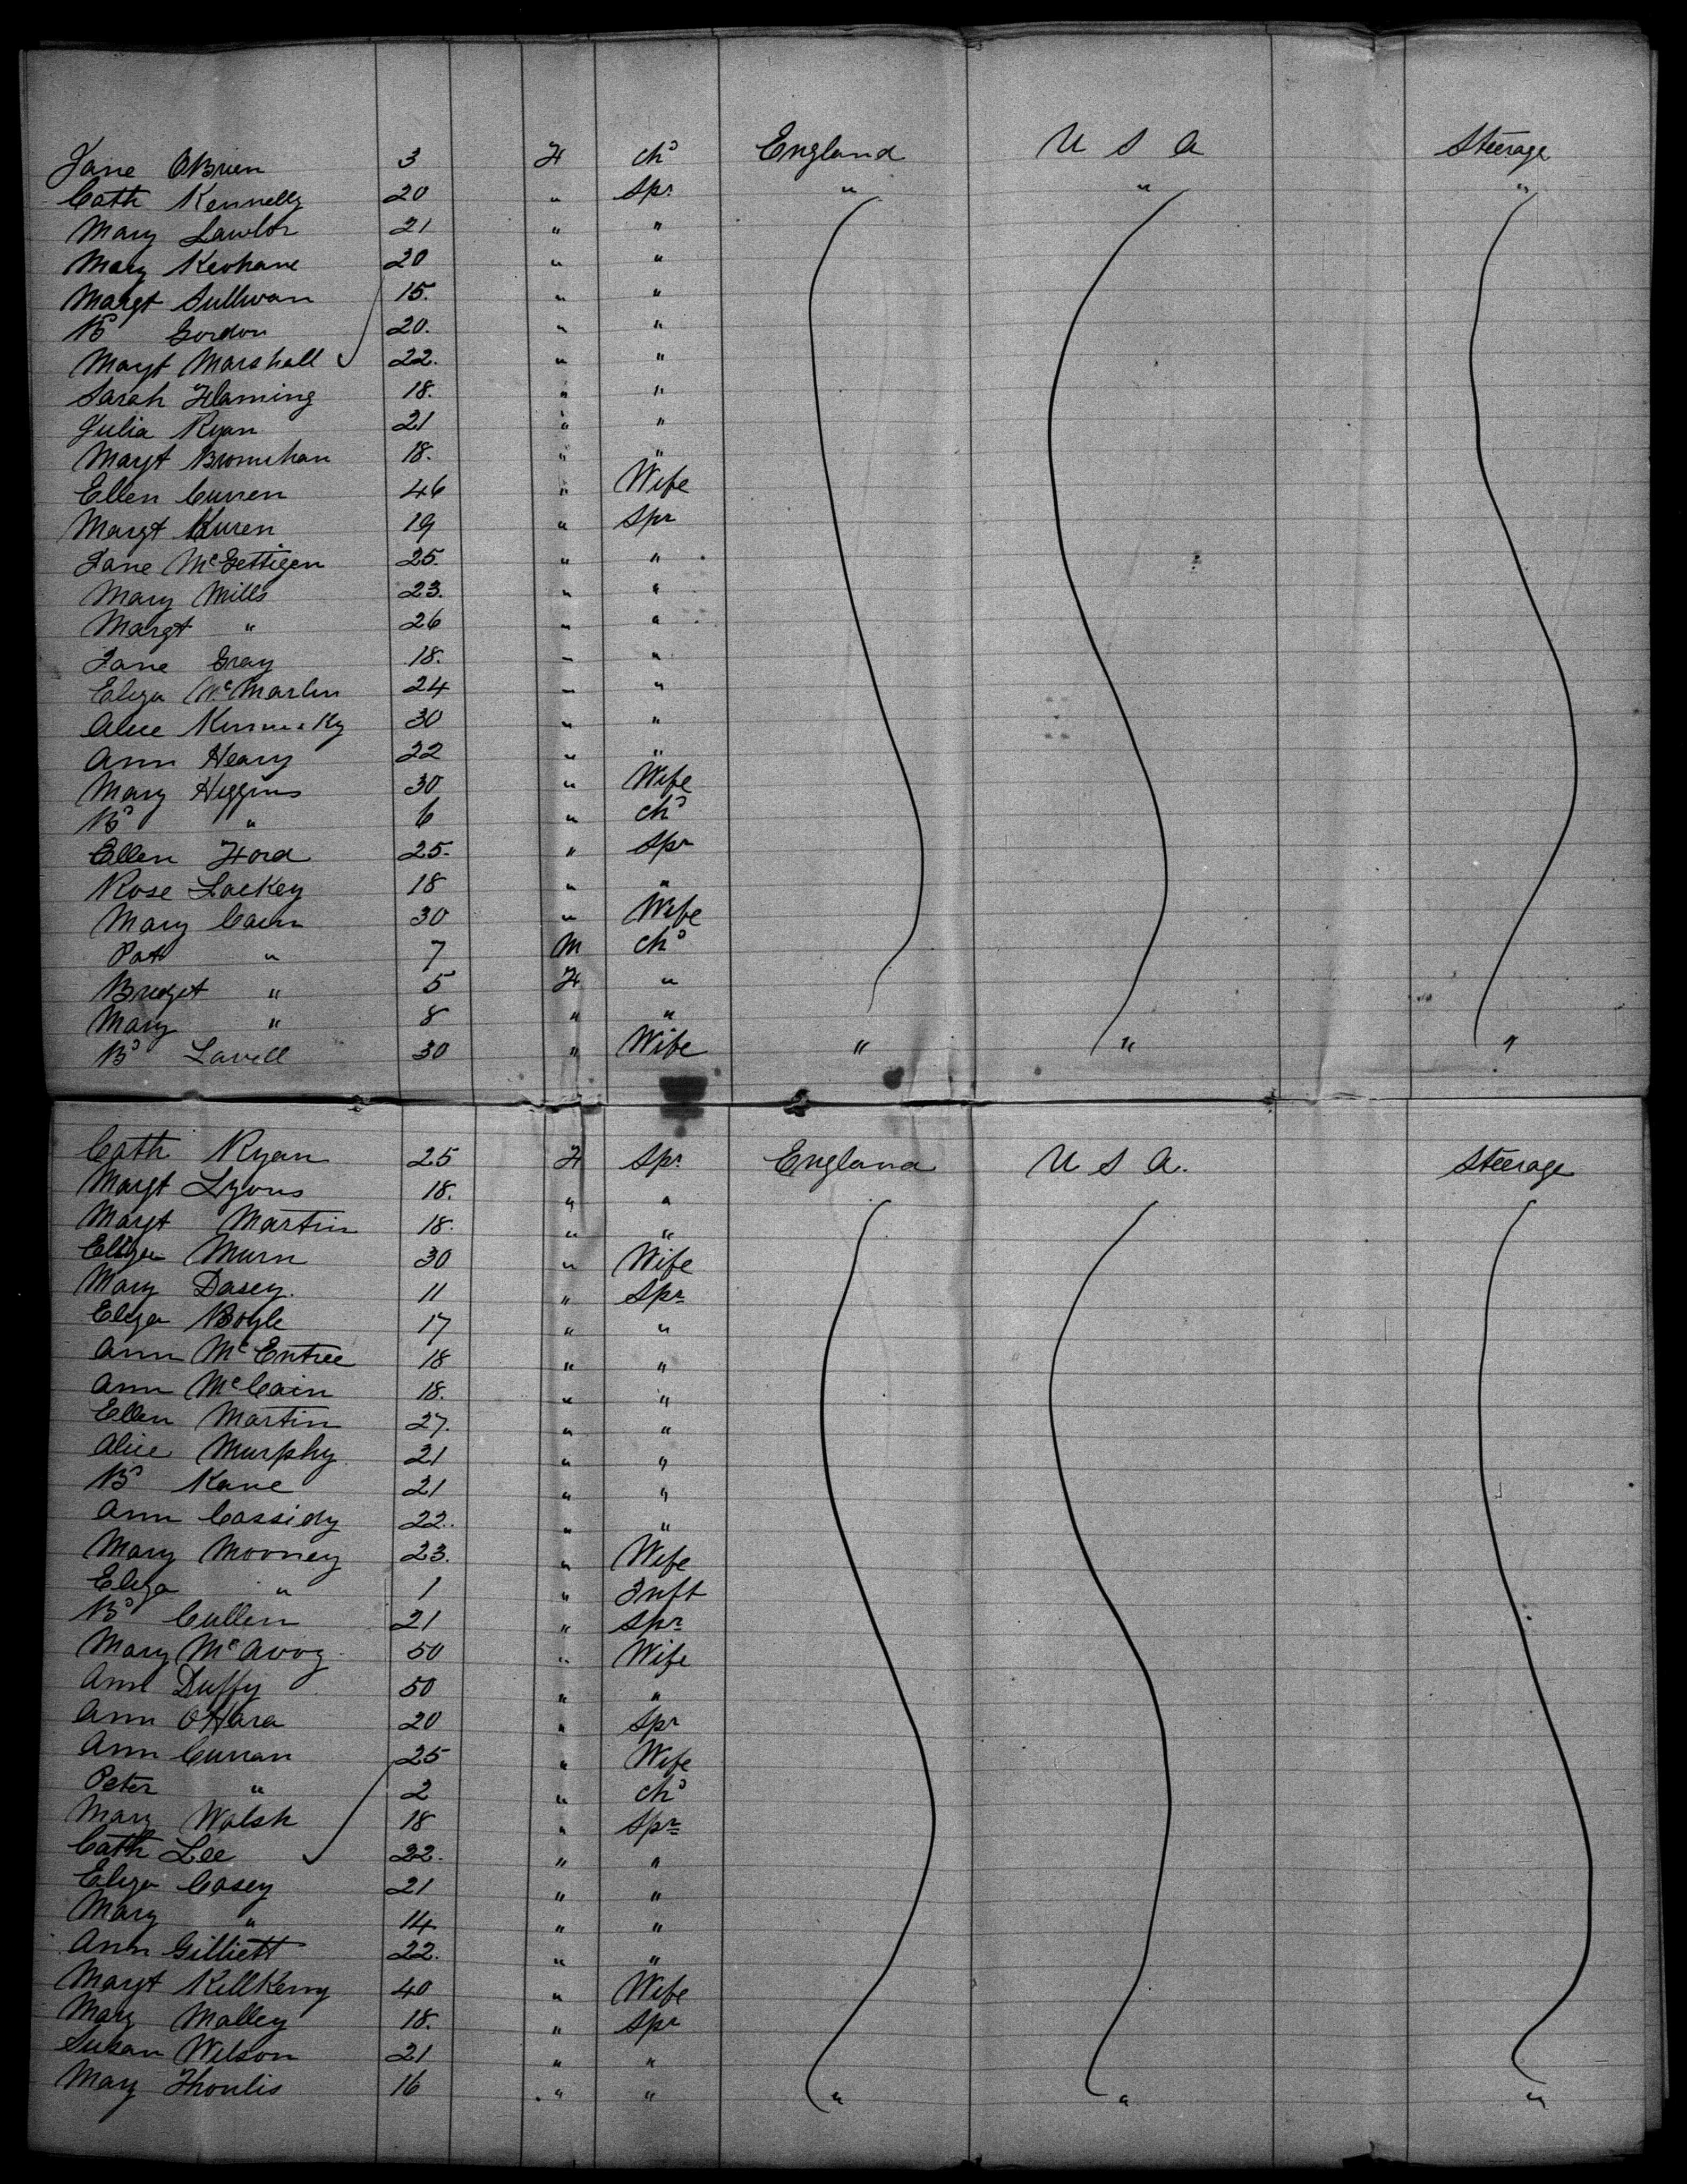 Jane OBrien 3 F chd England U S A Steerage
Cath Kennelly 20 " Spr " " "
Mary Lawlor 21 " "
Mary Keohane 20 " "
Margt Sullivan 15. " "
Bd Gordon 20. " "
Margt Marshall 22. " "
Sarah Flaming 18. " "
Julia Ryan 21 " "
Margt 18. " "
Ellen Curren 46 " Wife
Margt Kuren 19 " Spr
Jane McGettigen 25. " "
Mary Mills 23. " "
Margt " 26 " "
Jane Gray 18. " "
Eliza 24 " "
Alice 30 " "
Ann Heary 22 " "
Mary Higgins 30 " Wife
Bd " 6 " chd
Ellen Ford 25. " Spr
Rose Lackey 18 " "
Mary Cain 30 " Wife
Pat " 7 M chd
Bridget " 5 F "
Mary " 8 " "
Bd Lavell 30 " Wife " " "
Cath Ryan 25 F Spr England U S A. Steerage
Margt Lyons 18. " "
Margt Martin 18. " "
Eliza Murn 30 " Wife
Mary Dasey. 11 " Spr
Eliza Boyle 17 " "
Ann McEntree 18 " "
Ann McCain 18. " "
Ellen Martin 27. " "
Alice Murphy 21 " "
Bd Kane 21 " "
Ann Cassidy 22. " "
Mary Mooney 23. " Wife
Eliza " 1 " Inft
Bd Cullen 21 " Spr
Mary McAvoy 50 " Wife
Ann Duffy 50 " "
Ann OHara 20 " Spr
Ann Curran 25 " Wife
Peter " 2 " chd
Mary Walsh 18 " Spr
Cath Lee 22. " "
Eliza Casey 21 " "
Mary " 14 " "
Ann Gilliett 22. " "
Margt Killkenny 40 " Wife
Mary Malley 18. " Spr
Susan Wilson 21 " "
Mary Thonlis 16 " " " " "